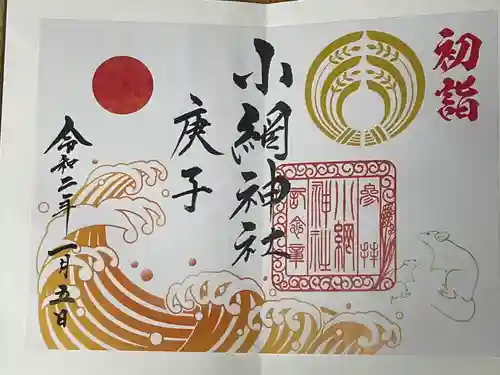 初詣
小網神社
庚子
令和二年一月五日
参拝
小網
神社
記念章